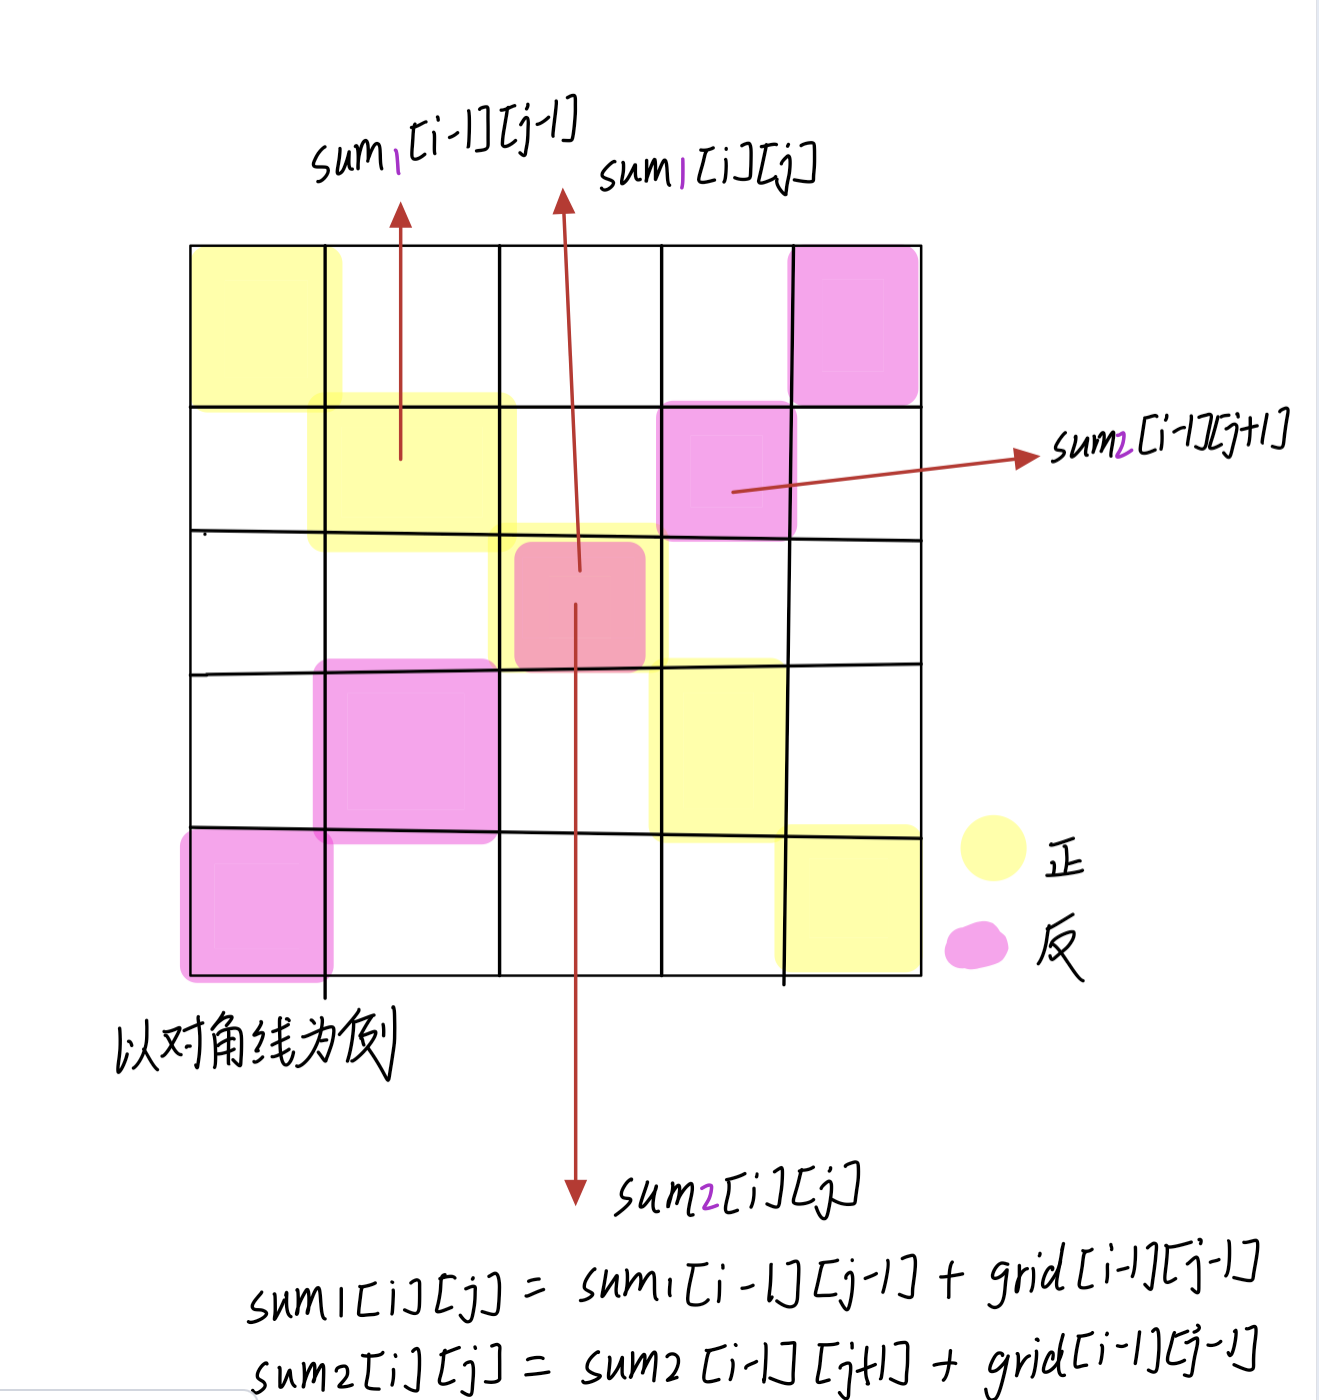 sum1[i-1][j-1]
sum1[i][j]
sum2[i-1][j+1]
正
反
以对角线为例
sum2[i][j]
sum1[i][j] = sum1[i-1][j-1] + grid[i-1][j-1]
sum2[i][j] = sum2[i-1][j+1] + grid[i-1][j-1]